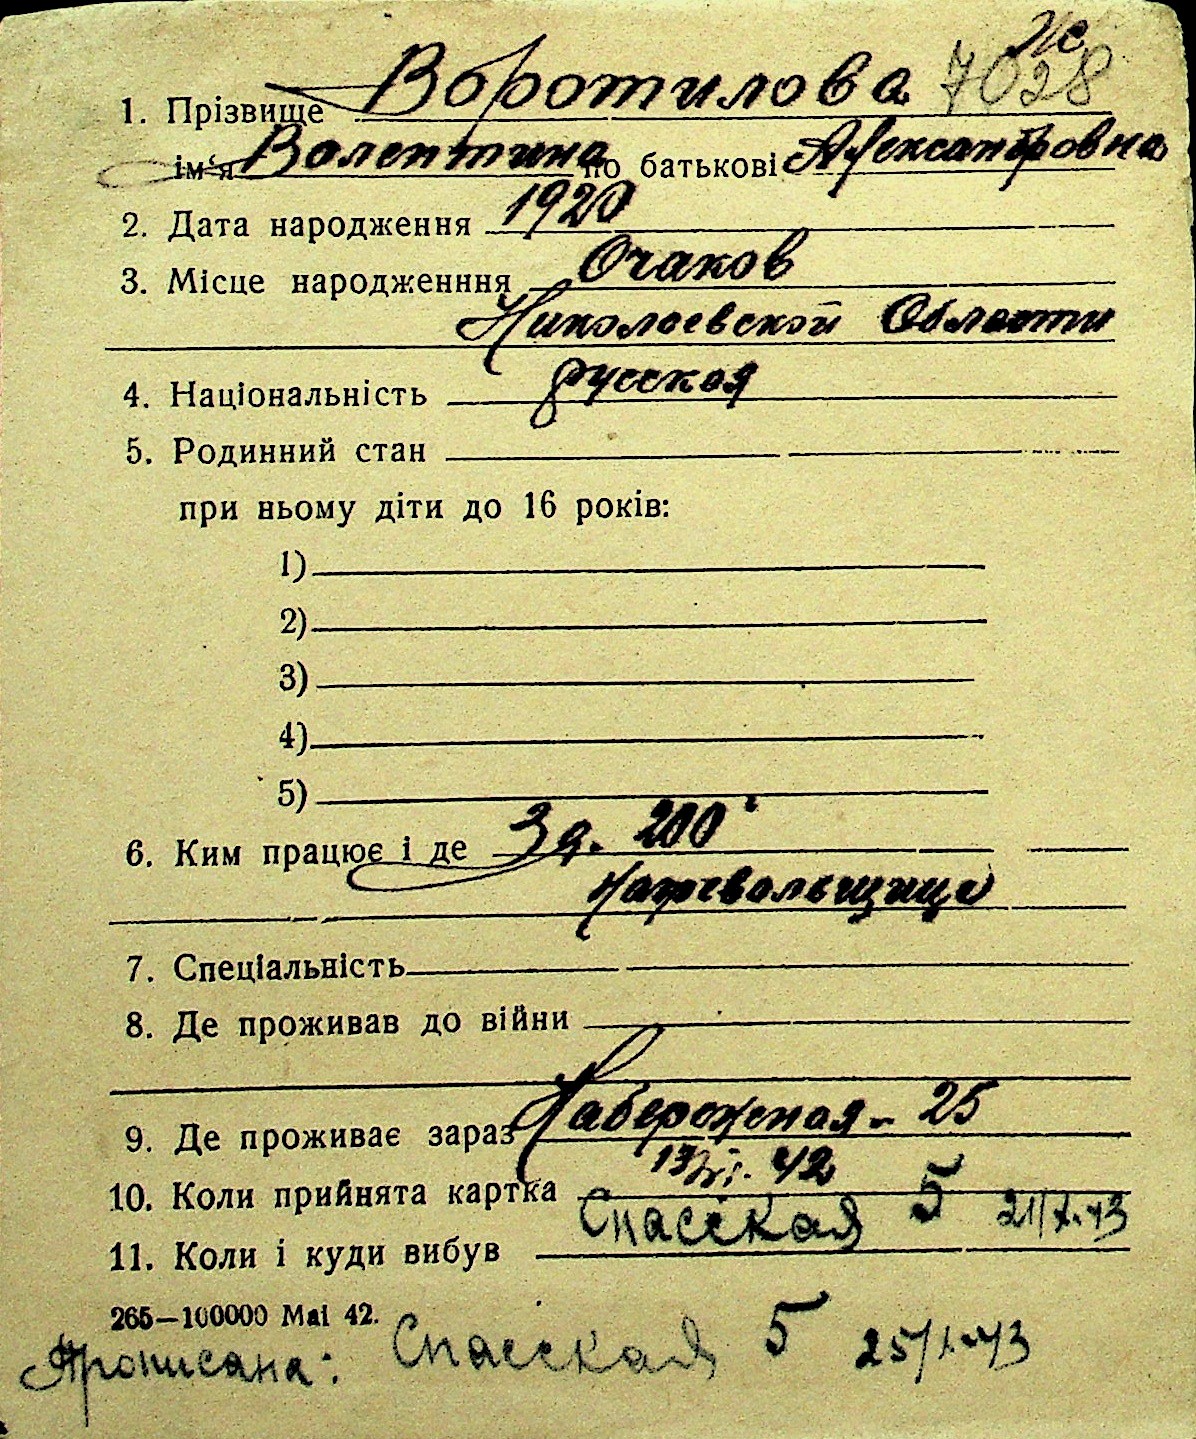 Же
1. Прізвище Воротилова 7028
ім'я Валентина по батькові Александровна
2. Дата народження 1920
3. Місце народженння Очаков
Николаевской Области
4. Національність русская
5. Родинний стан
при ньому діти до 16 років:
1)
2)
3)
4)
5)
6. Ким працює і де Зд. 200
7. Спеціальність
8. Де проживав до війни
9. Де проживає зараз Набережная - 25
10. Коли прийнята картка 42
Спасская 5 21/X-43
11. Коли і куди вибув
265—100000 Mai 42.
Прописана: Спасская 5 25/X-43